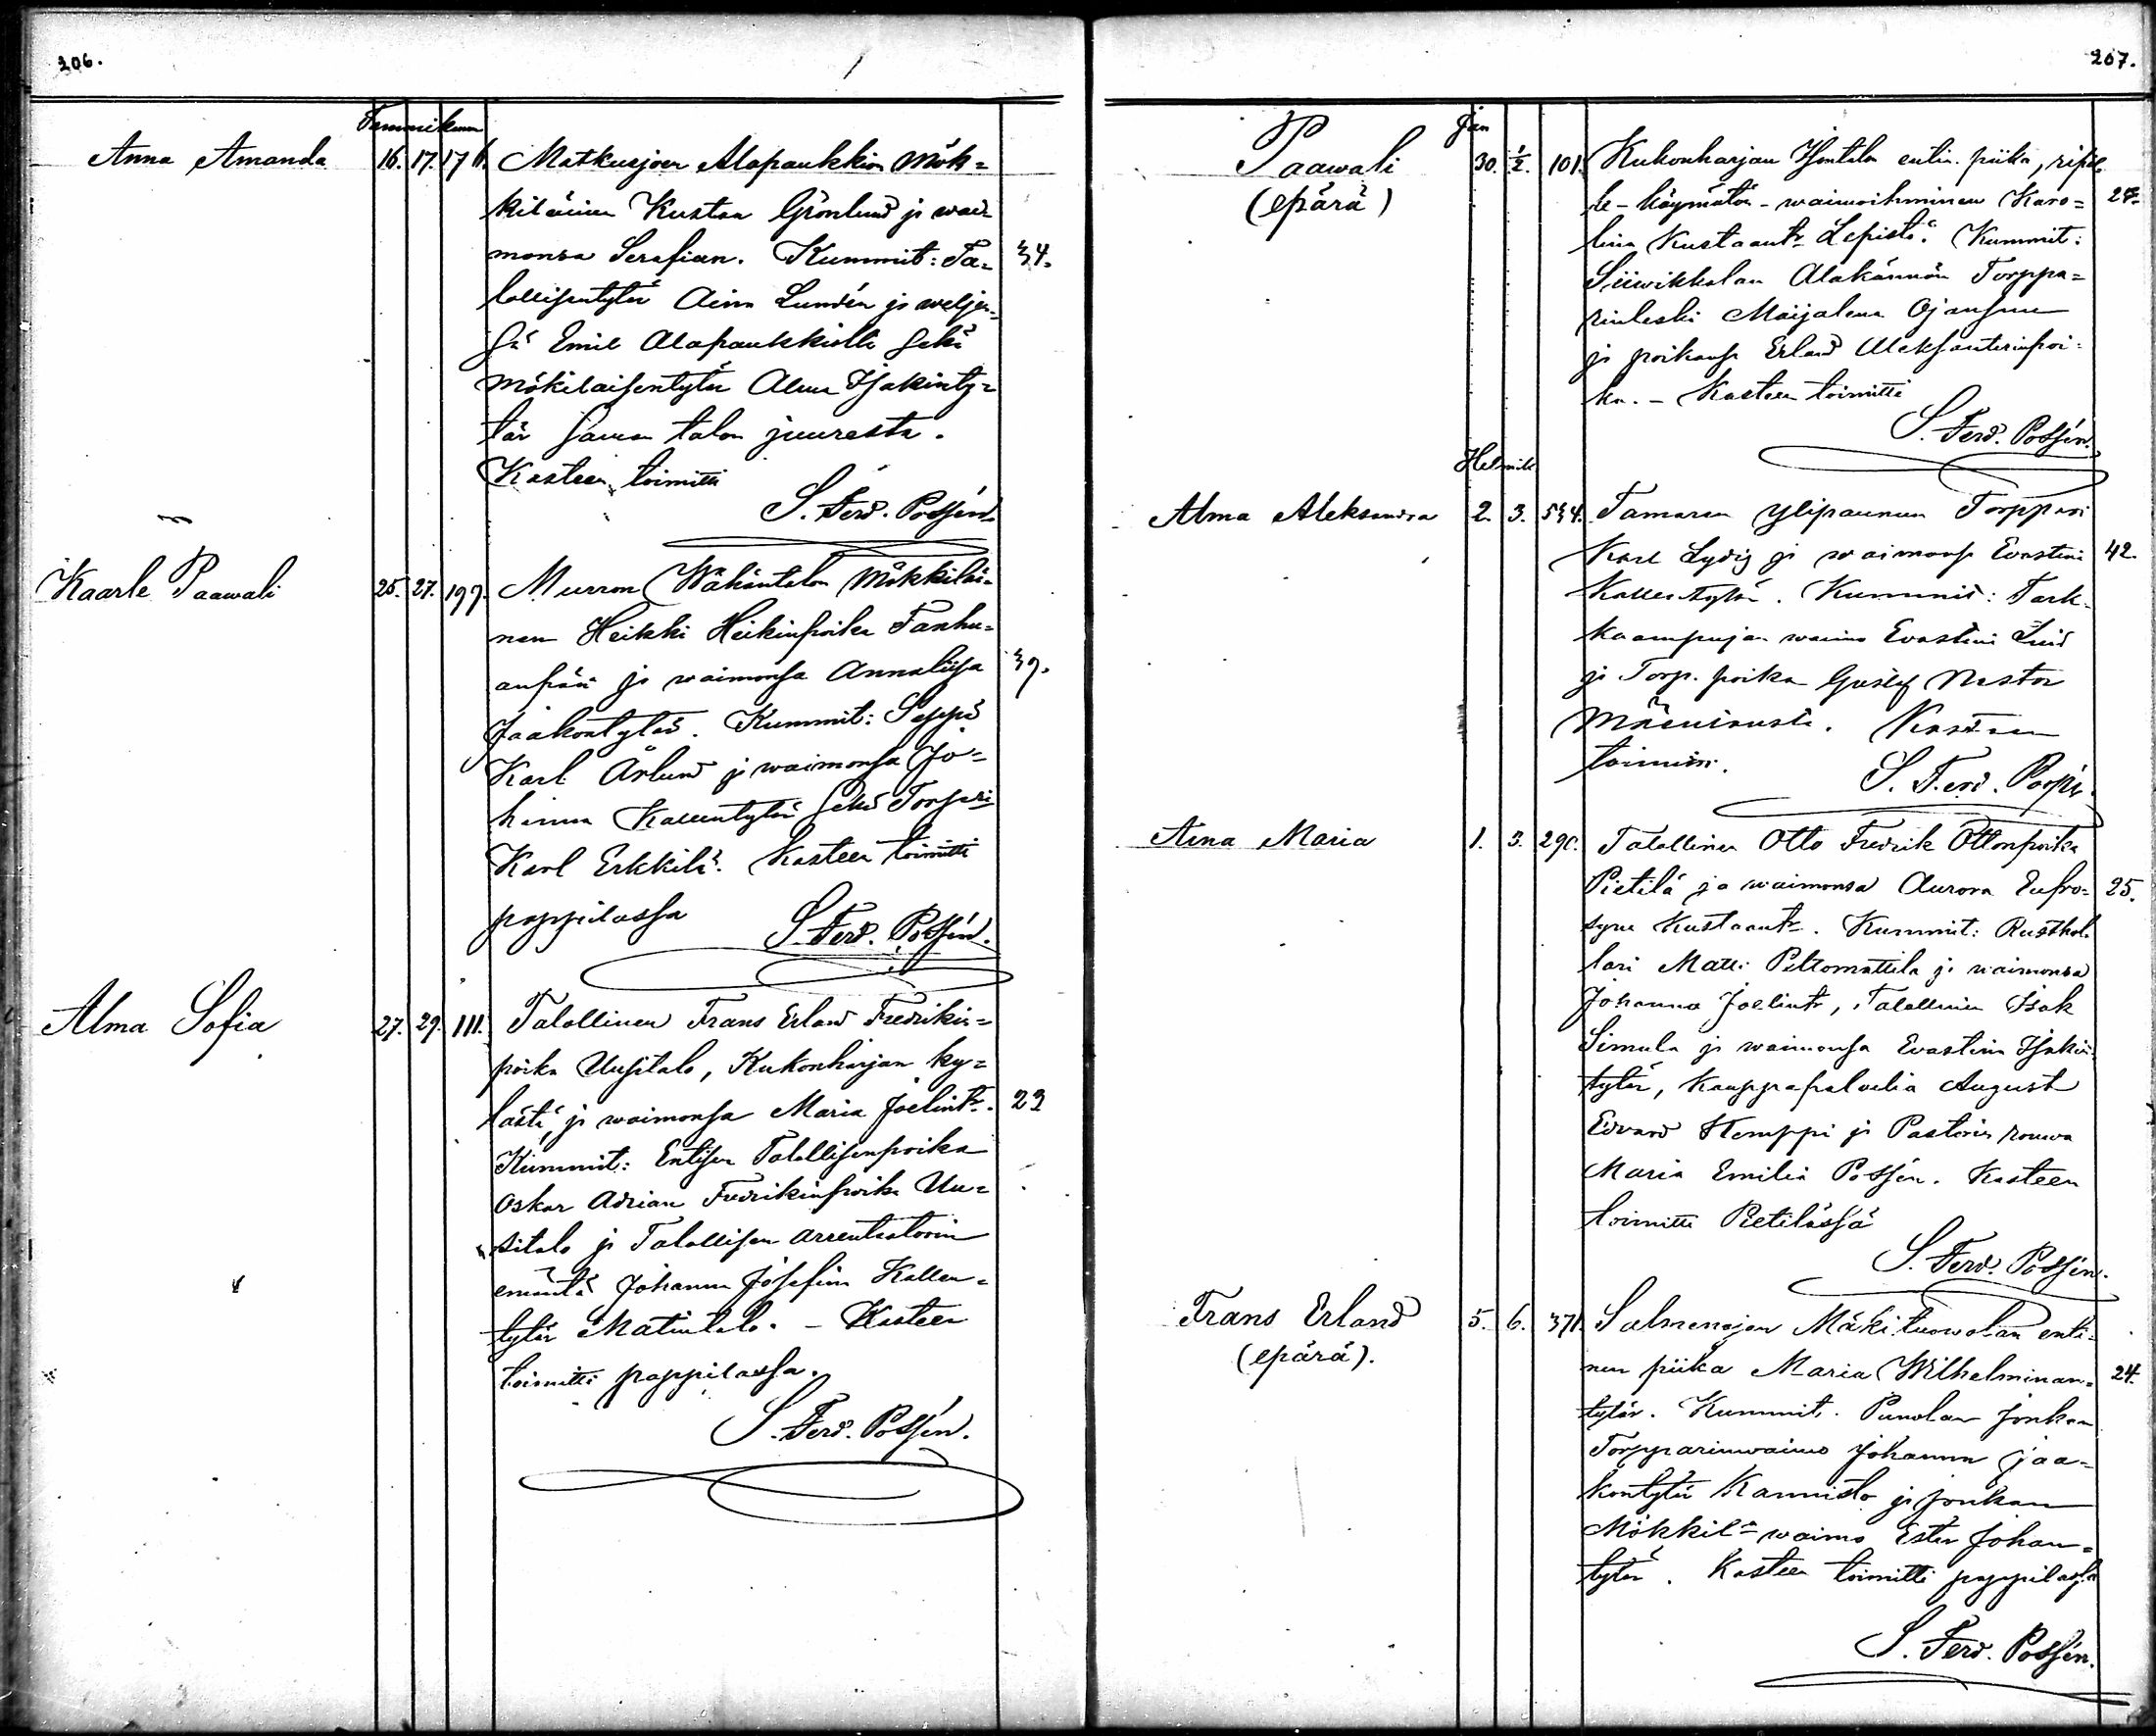 206.
Tammikuun
Anna Amanda 16. 17. 176. Matkusjoen Alapaukkion Mök=
kiläinen Kustaa Grönlund ja wai=
monsa Serafian. Kummit: Ta= 34.
lollisentytär Aina Lundén ja weljen=
sä Emil Alapaukkiolta sekä
mökiläisentytär Alma Isakinty=
tär saman talon juuresta.
Kasteen toimitti
S. Ferd. Possén.
Kaarle Paawali 25. 27. 199. Murron Wähäntalon Mökkiläi=
nen Heikki Heikinpoika Tanhu=
anpää ja waimonsa Annaliisa 39.
Jaakontytär. Kummit: Seppä
Karl Ånlund ja waimonsa Jo=
hanna Kallentytär sekä Torppari
Karl Erkkilä. Kasteen toimitti
pappilassa
S. Ferd. Possén.
Alma Sofia 27. 29. 111. Talollinen Frans Erland Fredrikin=
poika Uusitalo, Kukonharjan ky=
lästä, ja waimonsa Maria Joelintr. 23
Kummit: Entisen Talollisenpoika
Oskar Adrian Fredrikinpoika Uu=
sitalo ja Talollisen arrentaatorin
emäntä Johanna Josefina Kallen=
tytär Matintalo. - Kasteen
toimitti pappilassa.
S. Ferd. Possén.
207.
Jan
Paawali 30. 1/2. 101. Kukonharjan Isontalon entin. piika, ripil=
(epärä) le-käymätön-waimoihminen Karo= 27.
lina Kustaantr Lepistö. Kummit:
Siiwikkalan Alakännön Torppa=
rinleski Maijalena Ojansuu
ja poikansa Erland Aleksanterinpoi=
ka. - Kasteen toimitti
S. Ferd. Possén.
Helmik
Alma Aleksandra 2. 3. 534. Tamaren Ylipaunun Torppari
Karl Lydig ja waimonsa Evastina 42.
Kallentytär. Kummit: Tark=
kaampujan waimo Evastina Lind
ja Torp. poika Gustaf Nestor
Kasteen
toimitti.
S. Ferd. Possén.
Aina Maria 1. 3. 290. Talollinen Otto Fredrik Ottonpoika
Pietilä ja waimonsa Aurora Eufro= 25.
syna Kustaantr. Kummit: Rusthol=
lari Matti Peltomattila ja waimonsa
Johanna Joelintr, Talollinen Isak
Simula ja waimonsa Evastina Isakin=
tytär, Kauppapalvelia August
Edvard Kemppi ja Pastorin rouwa
Maria Emilia Possén. Kasteen
toimitti Pietilässä
S. Ferd. Possén.
Frans Erland 5. 6. 371. Salmenojan Mäkituowolan enti=
(epärä). nen piika Maria Wilhelminan= 24.
tytär. Kummit. Punolan Jonkan
Torpparinwaimo Johanna Jaa=
kontytär Kannisto ja Jonkan
Mökkil= waimo Ester Johan=
tytär. Kasteen toimitti pappilassa
S. Ferd. Possén.